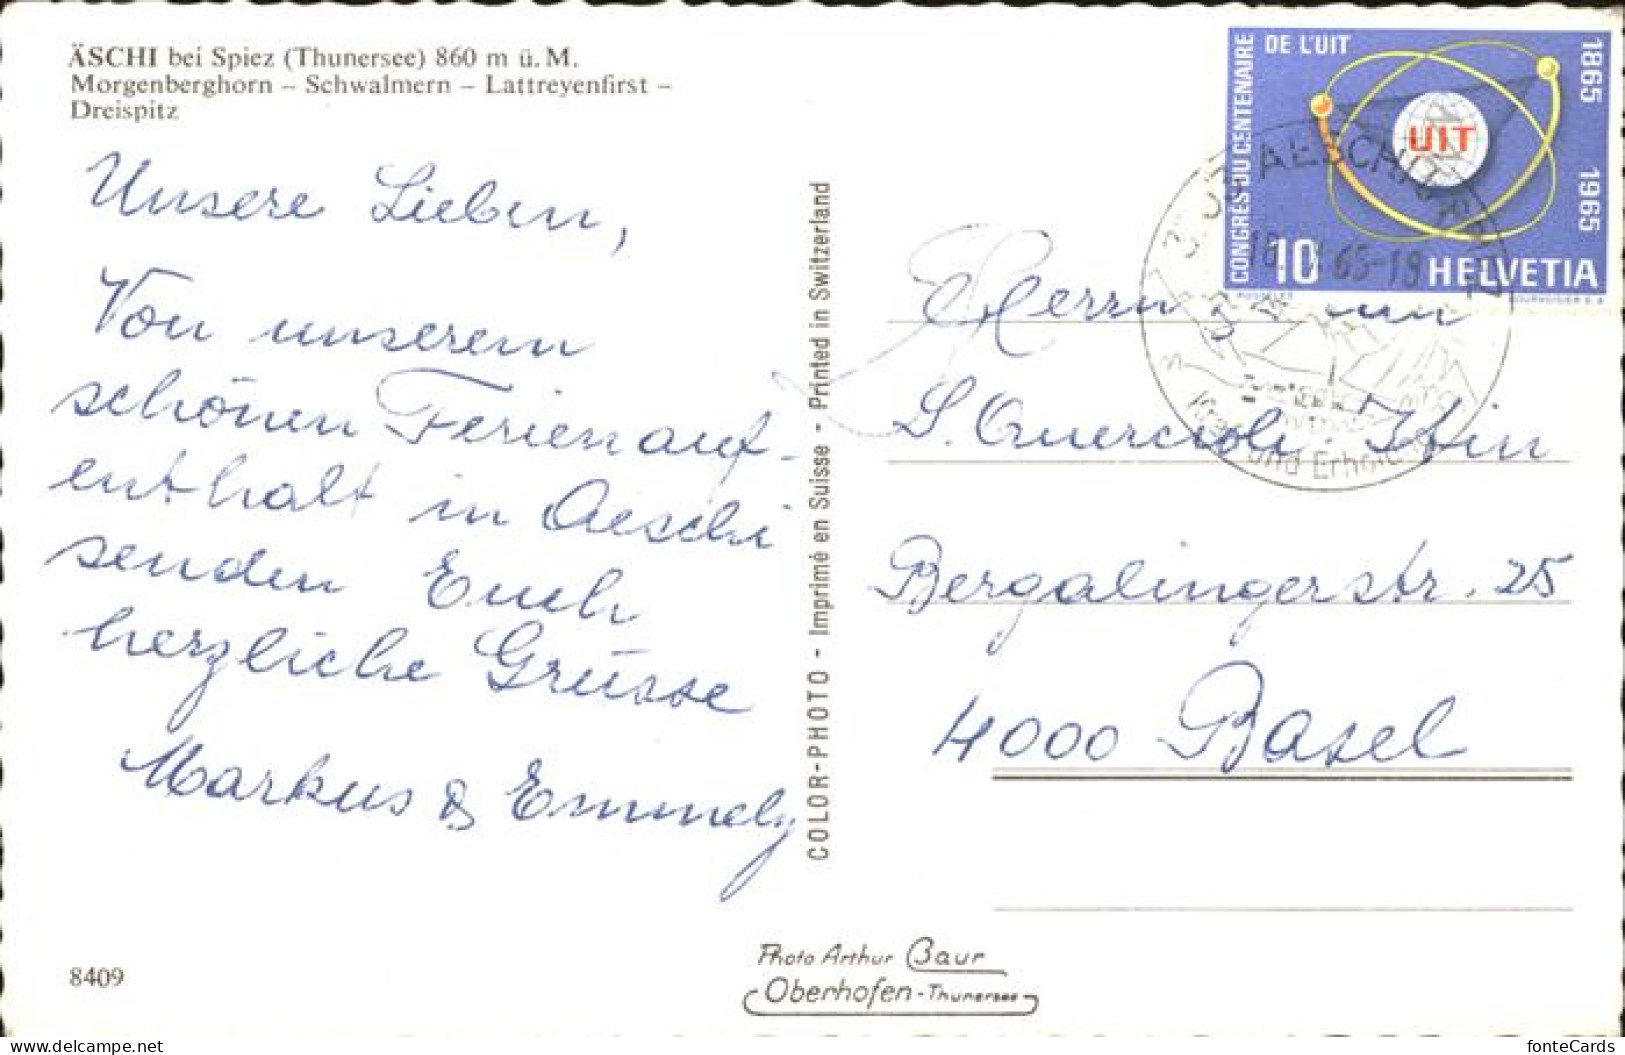 ÄSCHI bei Spiez (Thunersee) 860 m ü. M.
Morgenberghorn – Schwalmern – Lattreyenfirst –
Dreispitz
Unsere Lieben,
Von unserem
schönen Ferienauf-
enthalt in Aeschi
senden Euch
herzliche Grüsse
Markus & Emmely
8409
COLOR-PHOTO - Imprimé en Suisse - Printed in Switzerland
Photo Arthur Baur
Oberhofen - Thunersee
CONGRÈS DU CENTENAIRE
DE L'UIT
1865
1965
UIT
10
HELVETIA
COURVOISIER S.A.
AESCHI
65-19
und
Herrn
Bergalingerstr. 25
4000 Basel
fonteCards